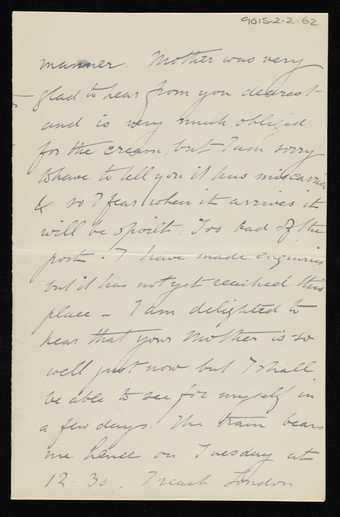 9015-2-2-62
manner. Mother was very
glad to hear from you dearest
and is very much obliged
for the cream, but I am sorry
to have to tell you it has miscarried
& so I fear when it arrives it
will be spoilt. Too bad of the
post. I have made enquiries
but it has not yet reached this
place - I am delighted to
hear that your Mother is so
well just now but I shall
be able to see for myself in
a few days. The train bears
me hence on Tuesday at
12.30. I reach London